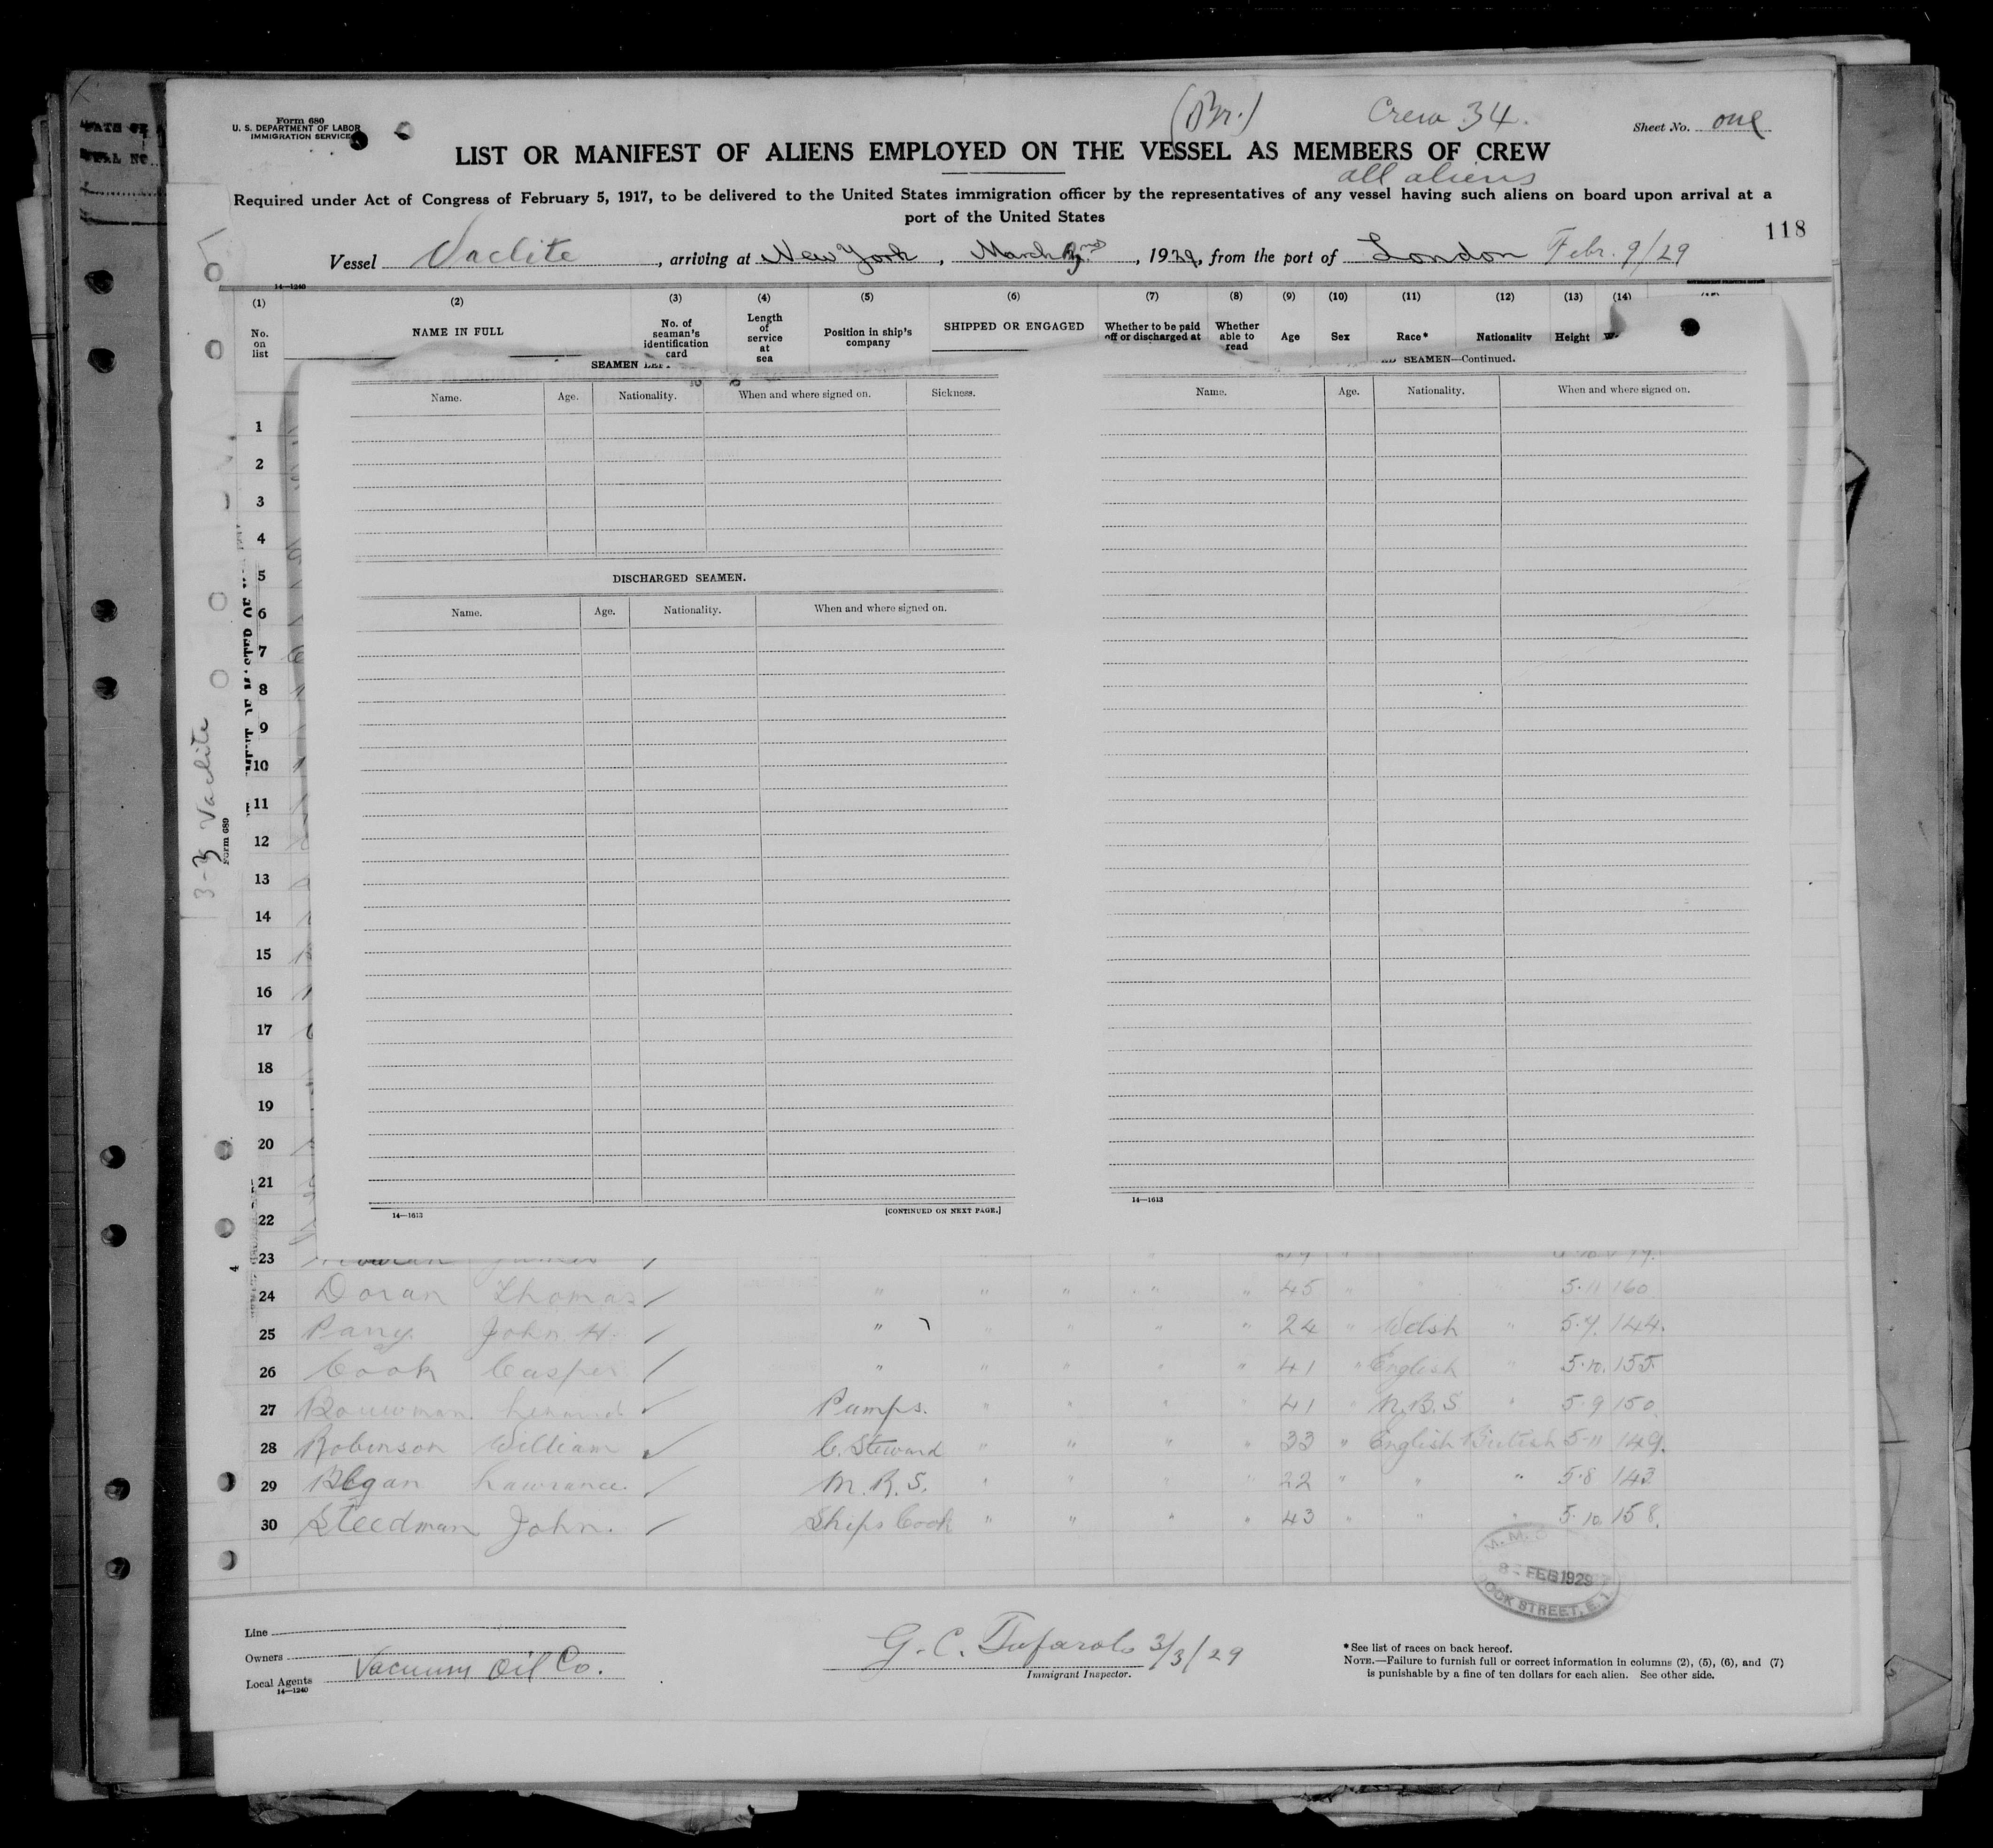 Form 680
U. S. DEPARTMENT OF LABOR
IMMIGRATION SERVICE
(Br.)
Crew 34.
Sheet No. one
LIST OR MANIFEST OF ALIENS EMPLOYED ON THE VESSEL AS MEMBERS OF CREW
all aliens
Required under Act of Congress of February 5, 1917, to be delivered to the United States immigration officer by the representatives of any vessel having such aliens on board upon arrival at a
port of the United States
118
Vessel Vaclite, arriving at New York, March, 1929, from the port of London Febr. 9/29
14—1240
(1) (2) (3) (4) (5) (6) (7) (8) (9) (10) (11) (12) (13) (14)
No. on list
NAME IN FULL
No. of seaman's identification card
Length of service at sea
Position in ship's company
SHIPPED OR ENGAGED
Whether to be paid off or discharged at
Whether able to read
Age
Sex
Race*
Nationality
Height
SEAMEN
SEAMEN—Continued.
Name. Age. Nationality. When and where signed on. Sickness.
Name. Age. Nationality. When and where signed on.
1
2
3
4
5
DISCHARGED SEAMEN.
Name. Age. Nationality. When and where signed on.
6
7
8
9
10
11
12
13
14
15
16
17
18
19
20
21
22
14—1613
[CONTINUED ON NEXT PAGE.]
14—1613
3-3 Vaclite
Form 680
23
24 Doran Thomas " " " " " 45 " " " 5·11 160
25 John H. " " " " " 24 " Welsh " 5·7. 144.
26 Cook Casper " " " " " 41 " English " 5·10. 155
27 Bouwman Pumps. " " " " 41 " N.B.S " 5·9 150
28 Robinson William C. Steward " " " " 33 " English British 5·11 149.
29 Lawrance. M.R.S. " " " " 22 " " " 5·8 143
30 Steedman John. Ships Cook " " " " 43 " " " 5·10. 158.
8 - FEB 1929
DOCK STREET, E. 1
Line
Owners
Local Agents Vacuum Oil Co.
14—1240
G. C. 3/3/29
Immigrant Inspector.
*See list of races on back hereof.
NOTE.—Failure to furnish full or correct information in columns (2), (5), (6), and (7)
is punishable by a fine of ten dollars for each alien. See other side.